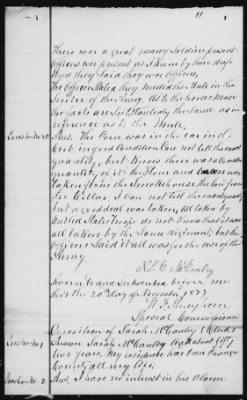 11
There were a great many Soldiers present
Officers were present as I knew by their dress
And they said they were Officers.
The Officers stated they needed the Mule in the
Service of the Army. As to the
the facts are substantially the same as in
reference as to the Mule.
Question No 20
Ans. The Corn was in the ear in a
Crib in good Condition Can not tell the exact
quantity, but Know there was a Considerable
quantity of it. The Flour and Bacon was
taken from the Smokehouse, the Lard from
the Cellar, I Can not tell the exact quantity
but a good deal was taken, All taken by
United States Troops do not Know that it was
all taken by the Same regiment, but the
Officer Said it all was for the use of the
Army
McCauley
Sworn to and subscribed before me
this the 20th day of November 1877
Special Commissioner
Question No 1
Deposition of Sarah McCauley
Answer Sarah McCauley
two years. My residence was in Orange
County all my life.
Question No 2
Ans. I have no interest in his Claim